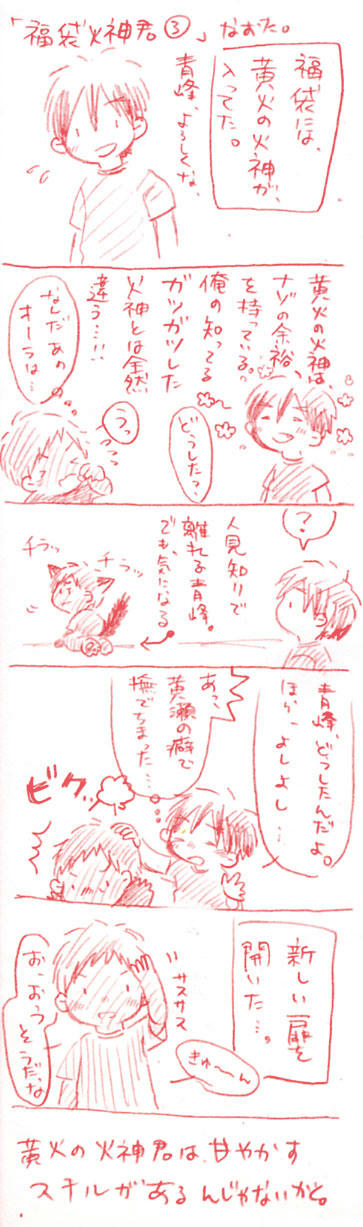 「福袋火神君③」なおた。
福袋には、
黄火の火神が、
入ってた。
青峰、よろしくな、
黄火の火神は、
ナゾの余裕、
を持っている。
俺の知ってる
ガツガツした
火神とは全然
違う…!!
なんだあの
オーラは…
うっ
どうした?
?
人見知りで
離れる青峰。
でも気になる
チラッ
チラッ
青峰、どうしたんだよ。
ほらーよしよし…
あっ、
黄瀬の癖で
撫でちまった…
ビクッ
新しい扉を
開いた…。
サスサス
きゅ〜〜ん
おっおっう
そうだな
黄火の火神君は、甘やかす
スキルがあるんじゃないかと。